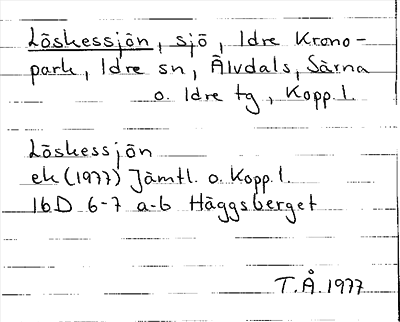 Löskessjön, sjö, Idre Krono-
park, Idre sn, Älvdals, Särna
o. Idre tg, Kopp. l.
Löskessjön
ek (1977) Jämtl. o. Kopp. l.
16D 6-7 a-b Häggsberget
T.Å. 1977